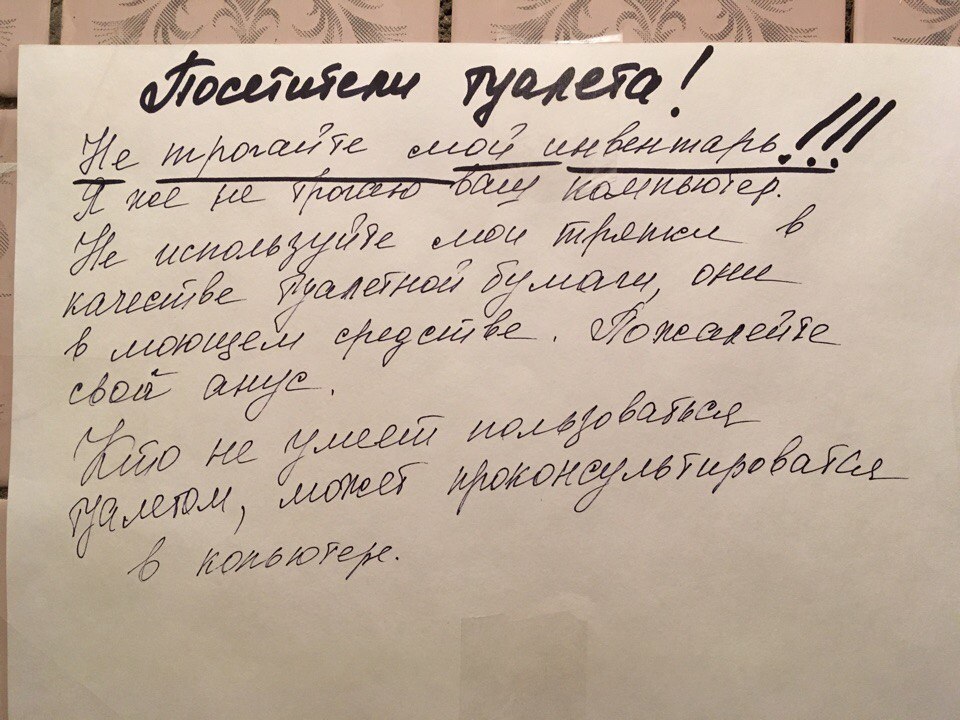 Посетители туалета!
Не трогайте мой инвентарь!!!
Я же не трогаю ваш компьютер.
Не используйте мои тряпки в
качестве туалетной бумаги, они
в моющем средстве. Пожалейте
свой анус.
Кто не умеет пользоваться
туалетом, может проконсультироватся
в копьютере.